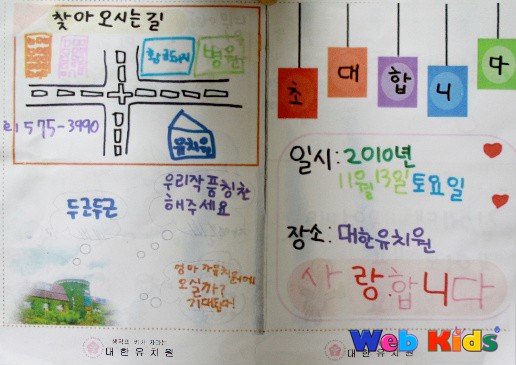 찾아오시는길
황금돼지
병원
유치원
575-3990
두근두근
우리작품칭찬
해주세요
오실까?
생각의 키가 자라는
대한유치원
초대합니다
일시: 2010년
11월 13일 토요일
장소: 대한유치원
사랑합니다
Web Kids
대한유치원